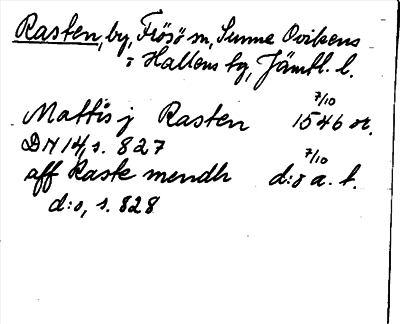 Rasten, by, Frösö sn, Sunne Ovikens
o Hallens tg, Jämtl. l.
Mattis j Rasten 7/10 1546 or.
DN 14, s. 827
aff Raste mendh 7/10 d:o a. st.
d:o, s. 828